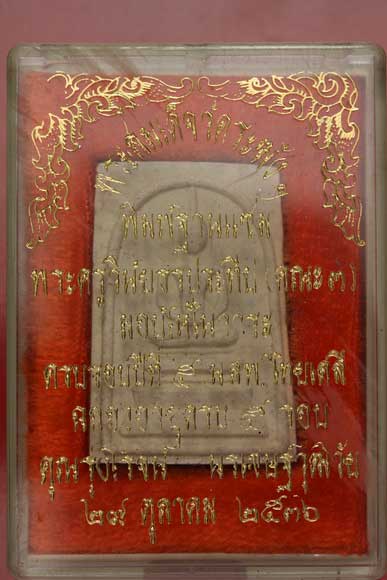 พระสมเด็จวัดระฆังฯ
พิมพ์ฐานแซม
พระครูวินัยธรประทีป (คณะ๗)
มอบให้ในวาระ
ครบรอบปีที่ ๔ น.ส.พ. ไทยเดลี่
ฉลองอายุครบ ๕ รอบ
คุณรุ่งโรจน์
๒๗ ตุลาคม ๒๕๓๖